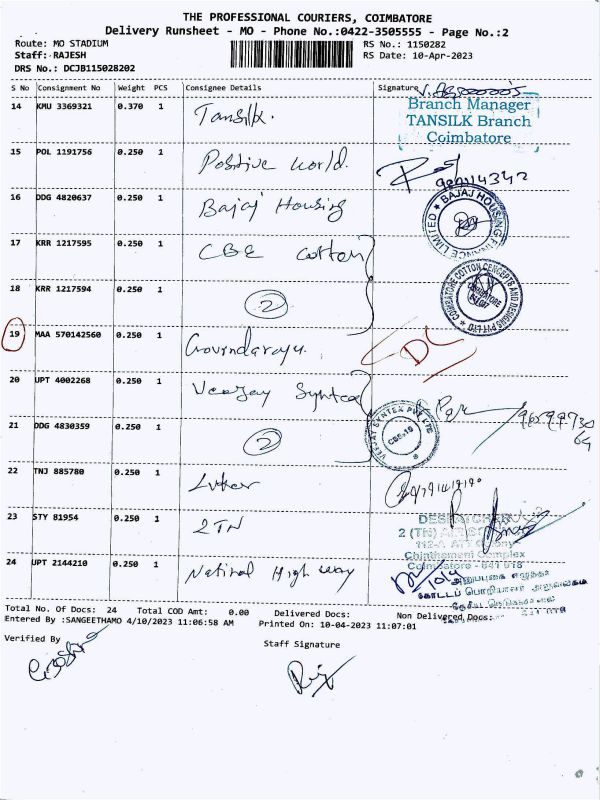 THE PROFESSIONAL COURIERS, COIMBATORE
Delivery Runsheet - MO - Phone No.:0422-3505555 - Page No.:2
Route: MO STADIUM
Staff: RAJESH
DRS No.: DCJB115028202
RS No.: 1150282
RS Date: 10-Apr-2023
S No Consignment No Weight PCS Consignee Details Signature
Branch Manager
TANSILK Branch
Coimbatore
14 KMU 3369321 0.370 1 Tansilk.
15 POL 1191756 0.250 1 Positive world.
16 DDG 4820637 0.250 1 Bajaj Housing
BAJAJ HOUSING FINANCE LIMITED
17 KRR 1217595 0.250 1 CBE Cotton
18 KRR 1217594 0.250 1 2
COIMBATORE COTTON CONCEPTS AND DESIGNS PVT LTD
19 MAA 570142560 0.250 1 Govindaraju. DC
20 UPT 4002268 0.250 1 Veejay Syntex
VEEJAY SYNTEX PVT LTD
CBE-18
21 DDG 4830359 0.250 1 2
22 TNJ 885780 0.250 1
23 STY 81954 0.250 1 2 TN
2 (TN)
Chinthamani Complex
Coimbatore - 641 018
24 UPT 2144210 0.250 1 National High way
கோட்டப் பொறியாளர் அலுவலகம்
Total No. Of Docs: 24 Total COD Amt: 0.00 Delivered Docs: Non Delivered Docs:
Entered By :SANGEETHAMO 4/10/2023 11:06:58 AM Printed On: 10-04-2023 11:07:01
Verified By
Staff Signature